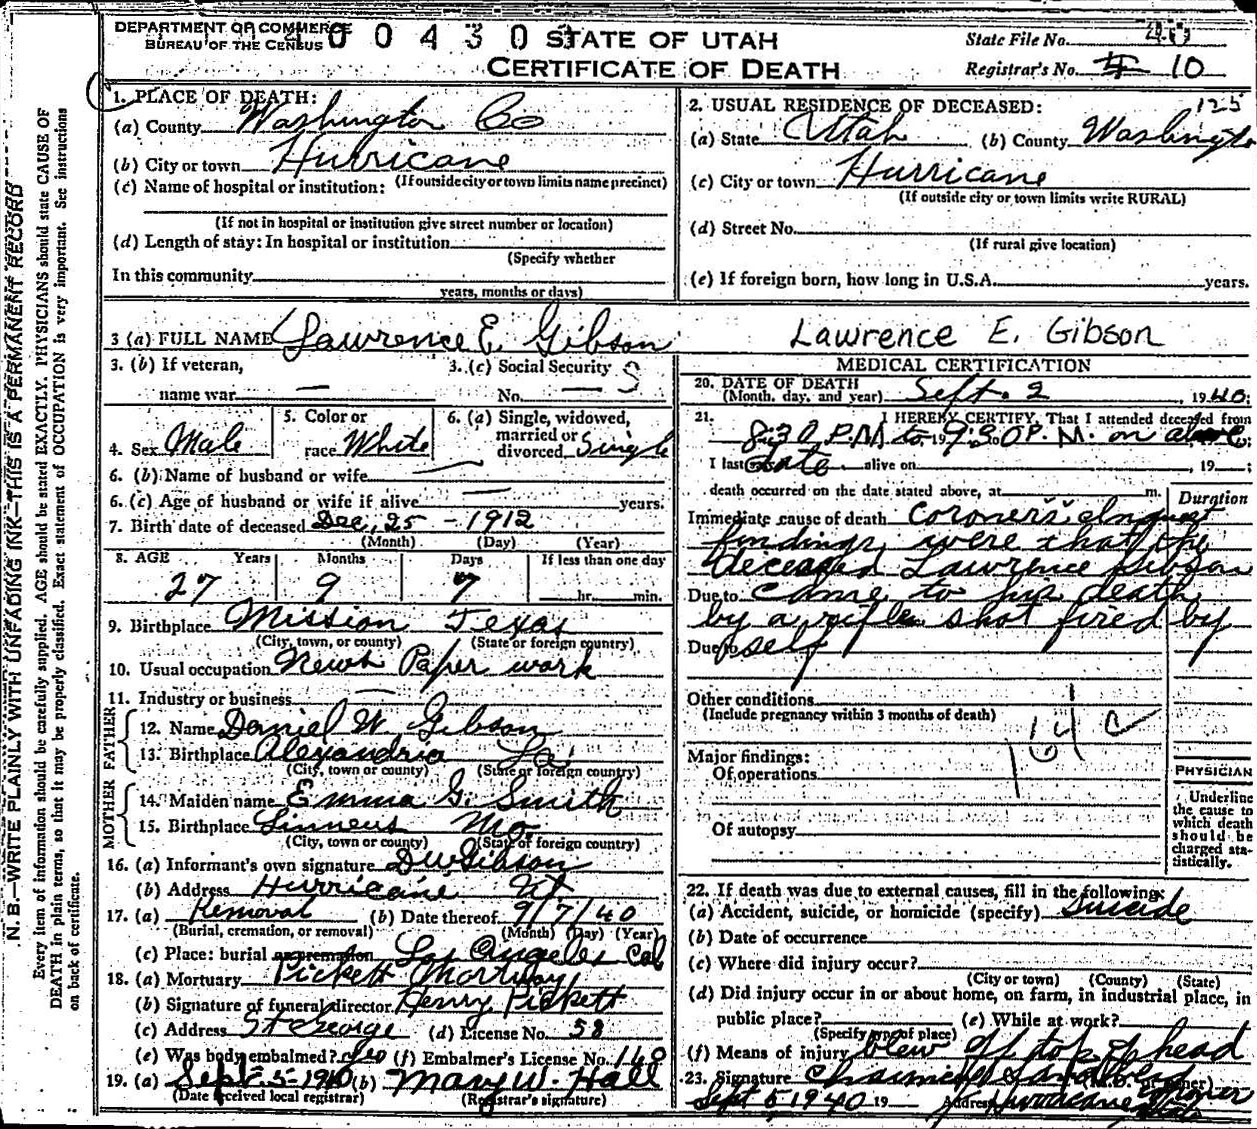 DEPARTMENT OF COMMERCE
BUREAU OF THE CENSUS
400430
STATE OF UTAH
CERTIFICATE OF DEATH
State File No.
Registrar's No. 10
N. B.—WRITE PLAINLY WITH UNFADING INK—THIS IS A PERMANENT RECORD
Every item of information should be carefully supplied. AGE should be stated EXACTLY. PHYSICIANS should state CAUSE OF
DEATH in plain terms, so that it may be properly classified. Exact statement of OCCUPATION is very important. See instructions
on back of certificate.
1. PLACE OF DEATH:
(a) County Washington Co
(b) City or town Hurricane
(If outside city or town limits name precinct)
(c) Name of hospital or institution:
(If not in hospital or institution give street number or location)
(d) Length of stay: In hospital or institution
(Specify whether
In this community
years, months or days)
2. USUAL RESIDENCE OF DECEASED: 125
(a) State Utah (b) County Washington
(c) City or town Hurricane
(If outside city or town limits write RURAL)
(d) Street No.
(If rural give location)
(e) If foreign born, how long in U.S.A. years.
3 (a) FULL NAME Lawrence E. Gibson Lawrence E. Gibson
3. (b) If veteran,
name war —
3. (c) Social Security
No. — S
4. Sex Male
5. Color or
race White
6. (a) Single, widowed,
married or
divorced Single
6. (b) Name of husband or wife —
6. (c) Age of husband or wife if alive — years.
7. Birth date of deceased Dec. 25 - 1912
(Month) (Day) (Year)
8. AGE Years Months Days If less than one day
27 9 7 hr. min.
9. Birthplace Mission Texas
(City, town, or county) (State or foreign country)
10. Usual occupation News Paper work
11. Industry or business —
FATHER
12. Name Daniel W. Gibson
13. Birthplace Alexandria La.
(City, town or county) (State or foreign country)
MOTHER
14. Maiden name Emma G. Smith
15. Birthplace Linneus Mo.
(City, town or county) (State or foreign country)
16. (a) Informant's own signature D W Gibson
(b) Address Hurricane Ut
17. (a) Removal (b) Date thereof 9/7/40
(Burial, cremation, or removal) (Month) (Day) (Year)
(c) Place: burial or cremation Los Angeles Cal
18. (a) Mortuary Pickett Mortuary
(b) Signature of funeral director Henry Pickett
(c) Address St George (d) License No. 58
(e) Was body embalmed? yes (f) Embalmer's License No. 148
19. (a) Sept. 5-1940 (b) Mary W. Hall
(Date received local registrar) (Registrar's signature)
MEDICAL CERTIFICATION
20. DATE OF DEATH
(Month, day, and year) Sept. 2, 1940
21. I HEREBY CERTIFY, That I attended deceased from
8:30 P.M. to 19 9:30 P.M. on above
I last saw date alive on , 19 ;
death occurred on the date stated above, at m.
Duration
Immediate cause of death Coroner's Inquest
findings were that the
deceased Lawrence Gibson
Due to came to his death
by a rifle shot fired by
Due to self
Other conditions
(Include pregnancy within 3 months of death)
164 c
Major findings:
Of operations
Of autopsy
PHYSICIAN
Underline
the cause to
which death
should be
charged sta-
tistically.
22. If death was due to external causes, fill in the following:
(a) Accident, suicide, or homicide (specify) Suicide
(b) Date of occurrence
(c) Where did injury occur?
(City or town) (County) (State)
(d) Did injury occur in or about home, on farm, in industrial place, in
public place? (e) While at work?
(Specify type of place)
(f) Means of injury blew off top of head
23. Signature
Sept 5 1940 19 Address Hurricane Utah